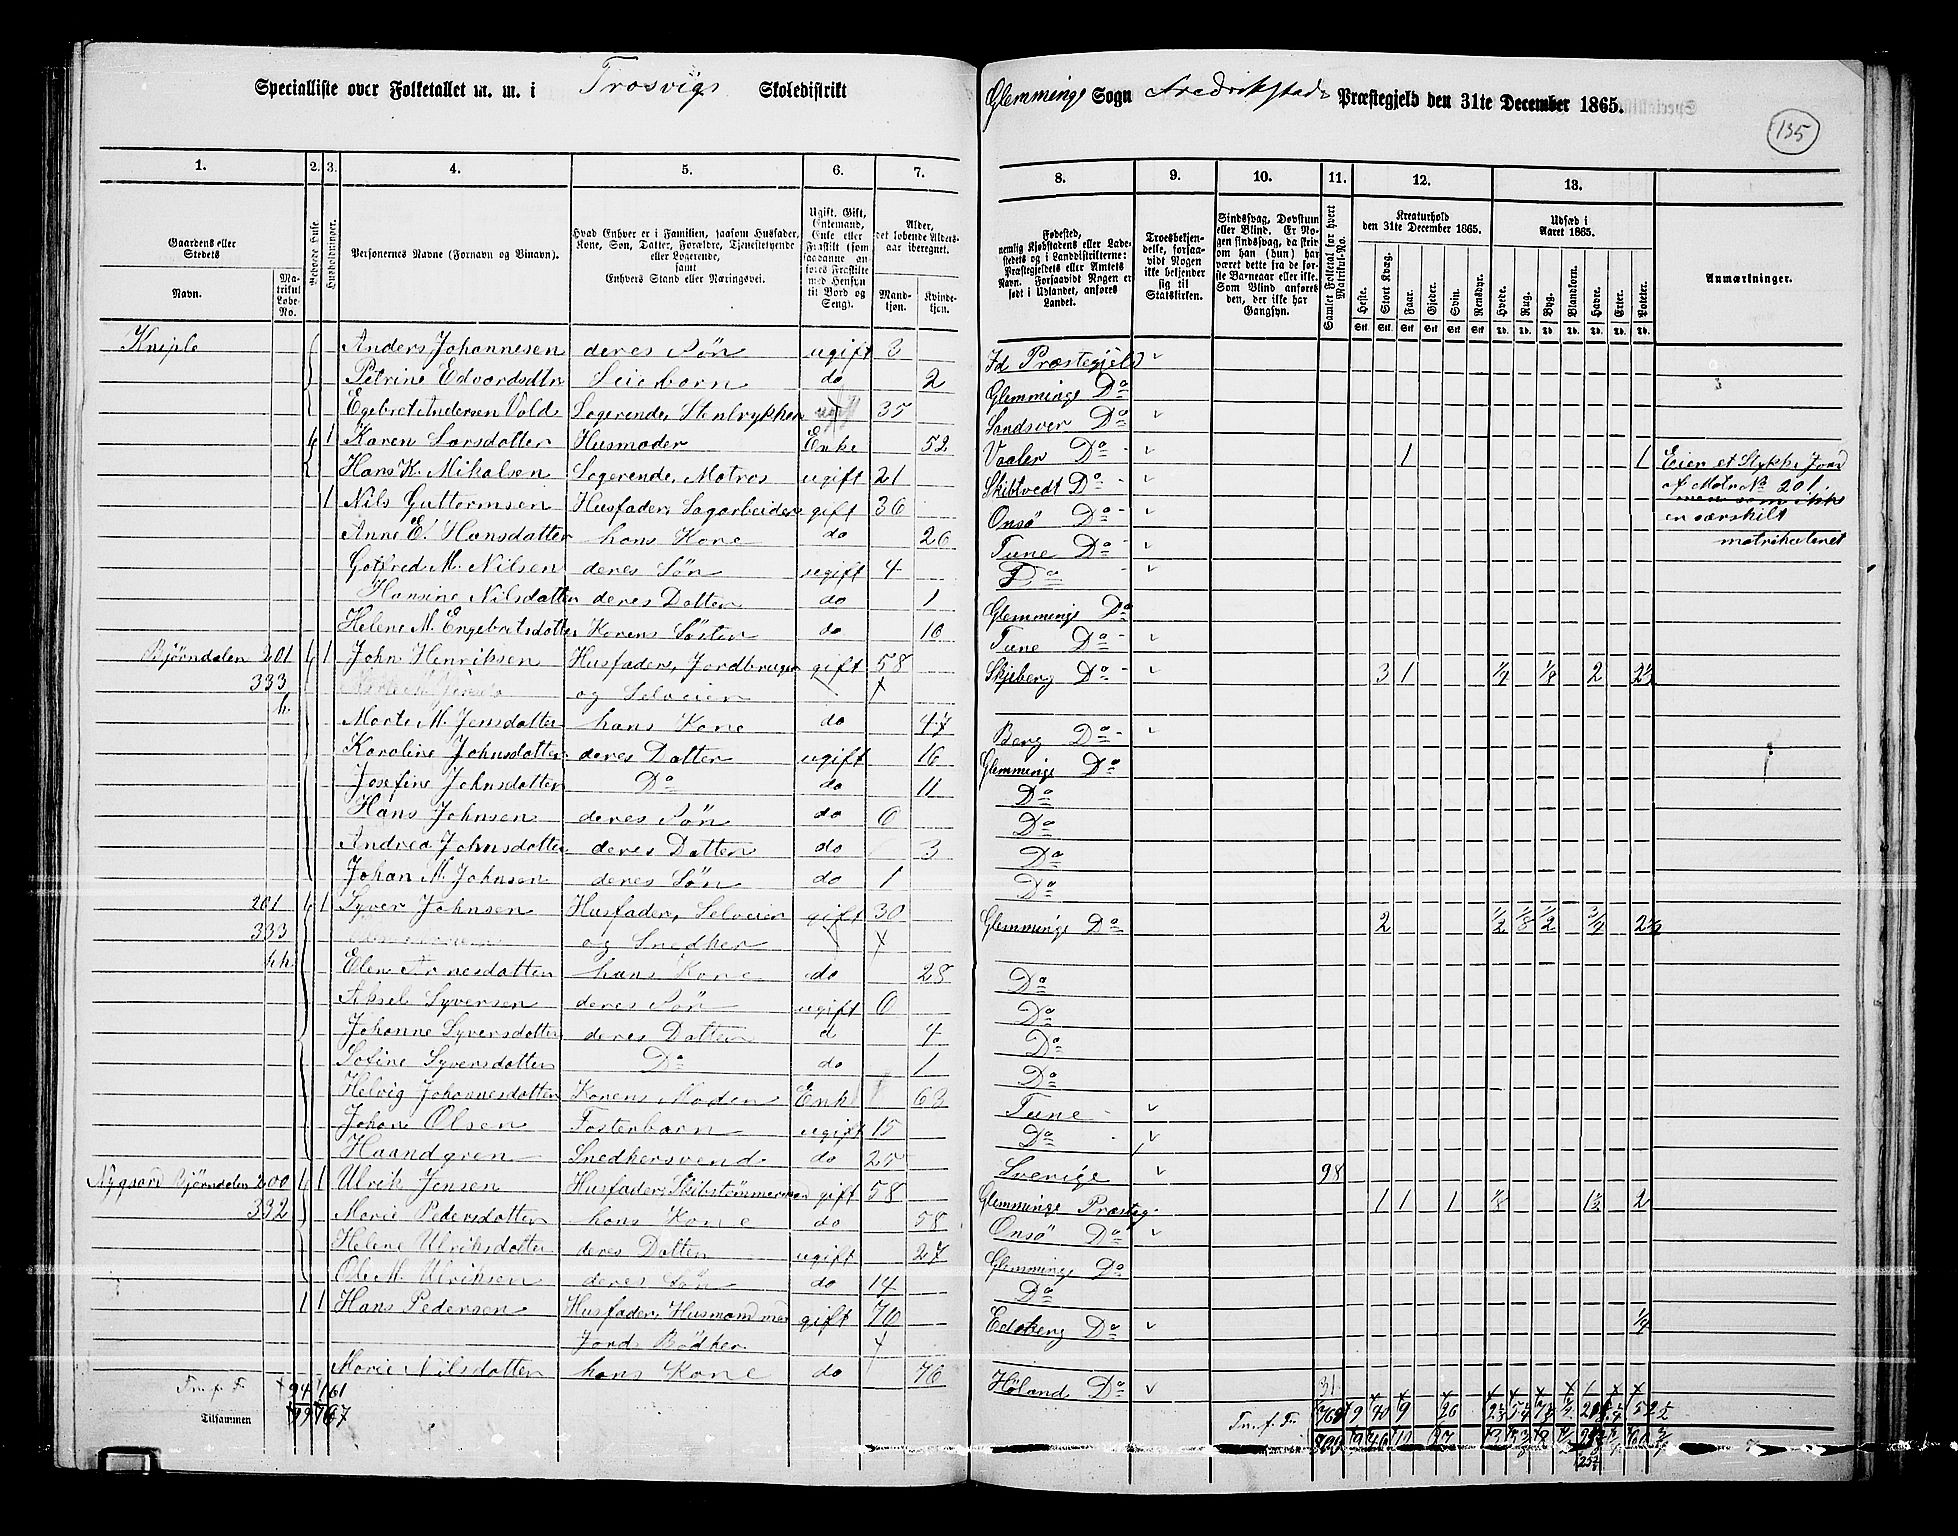 Specialliste over Folketallet m. m. i Trosvigs Skoledistrikt
Glemminge Sogn Fredrikstads Præstegjeld den 31te December 1865.
135
1. 2. 3. 4. 5. 6. 7.
8. 9. 10. 11. 12. 13.
Gaardens eller Stedets
Navn.
Matrikul Løbe-No.
Beboede Huse.
Husholdninger.
Personernes Navne (Fornavn og Binavn).
Hvad Enhver er i Familien, saasom Husfader, Kone, Søn, Datter, Forældre, Tjenestetyende eller Logerende, samt Enhvers Stand eller Næringsvei.
Ugift, Gift, Enkemand, Enke eller Frastilt (som saadanne anføres Frastilte med Hensyn til Bord og Seng).
Alder, det løbende Aldersaar iberegnet.
Mandkjøn. Kvindekjøn.
Fødested, nemlig Kjøbstadens eller Ladestedets og i Landdistrikterne: Præstegjeldets eller Amtets Navn. Forsaavidt Nogen er født i Udlandet, anføres Landet.
Troesbekjendelse, forsaavidt Nogen ikke bekjender sig til Statskirken.
Sindssvag, Døvstum eller Blind. Er Nogen sindssvag, da skrives om han (hun) har været dette fra de første Barneaar eller ikke. Som Blind anføres den, der ikke har Gangsyn.
Samlet Folketal for hvert Matrikul-No.
Kreaturhold den 31te December 1865.
Heste. Stort Kvæg. Faar. Gjeder. Svin. Rensdyr.
Udsæd i Aaret 1865.
Hvede. Rug. Byg. Blandkorn. Havre. Erter. Poteter.
Anmærkninger.
Kniple Anders Johannesen deres Søn ugift 3 Id Præstegjeld
Petrine Edvardsdtr Leiebarn do 2 Glemminge Do
Egebret Andersen Vold Logerende, 35 Sandsver Do
1 Karen Larsdatter Husmoder Enke 52 Vaaler Do 1 1 Eier et Stykke Jord
Hans K. Mikalsen Logerende, Matros ugift 21 Skibtvedt Do af Matr No 201
1 Nils Guttormsen Husfader, Sagarbeider gift 36 Onsø Do men som ikke
Anne E. Hansdatter hans Kone do 26 Tune Do er særskilt
matrikuleret
Gotfred M. Nilsen deres Søn ugift 4 Do
Hansine Nilsdatter deres Datter do 1 Glemminge Do
Helene M. Engebretsdatter Konens Søster do 16 Tune Do
Bjørndalen 201 1 1 John Henriksen Husfader, Jordbruger gift 58 Skjeberg Do 3 1 1/4 1/8 2 2 1/2
333 og Selveier
h.
Marte M. Jensdatter hans Kone do 47 Berg Do
Karoline Johnsdatter deres Datter ugift 16 Glemminge Do
Josefine Johnsdatter Do do 11 Do
Hans Johnsen deres Søn do 6 Do
Andrea Johnsdatter deres Datter do 3 Do
Johan M. Johnsen deres Søn do 1 Do
201 1 1 Syver Johnsen Husfader, Selveier gift 30 Glemminge Do 2 1/2 1/8 1/2 3/4
333 og Snedker
hh. Elen Arnesdatter hans Kone do 28 Do
Aksel Syversen deres Søn ugift 6 Do
Johanne Syversdatter deres Datter d 4 Do
Sofine Syversdatter Do do 1 Do
Helvig Johannesdatter Konens Moder Enk 63 Tune
Johan Olsen Fosterbarn ugift 15 Do
Haandgren Snedkersvend do 25 Sverige 98
Nygaard Bjørndalen 200 1 1 Ulrik Jensen Husfader, Skibstømmermand gift 58 Glemminge Præsteg. 1 1 1 1/8 1 1/2 2
332 Marie Pedersdatter hans Kone do 58 Onsø Do
Helene Ulriksdatter deres Datter ugift 27 Glemminge Do
Ole M. Ulriksen deres Søn do 14 Do
1 1 Hans Pedersen Husfader, Husmand med gift 70 Edsberg Do 1/4
Jord, Bødker
Marie Nilsdatter hans Kone do 76 Høland Do
Tr. f. F. 94 161 Tr. f. F.
Tilsammen 99 167